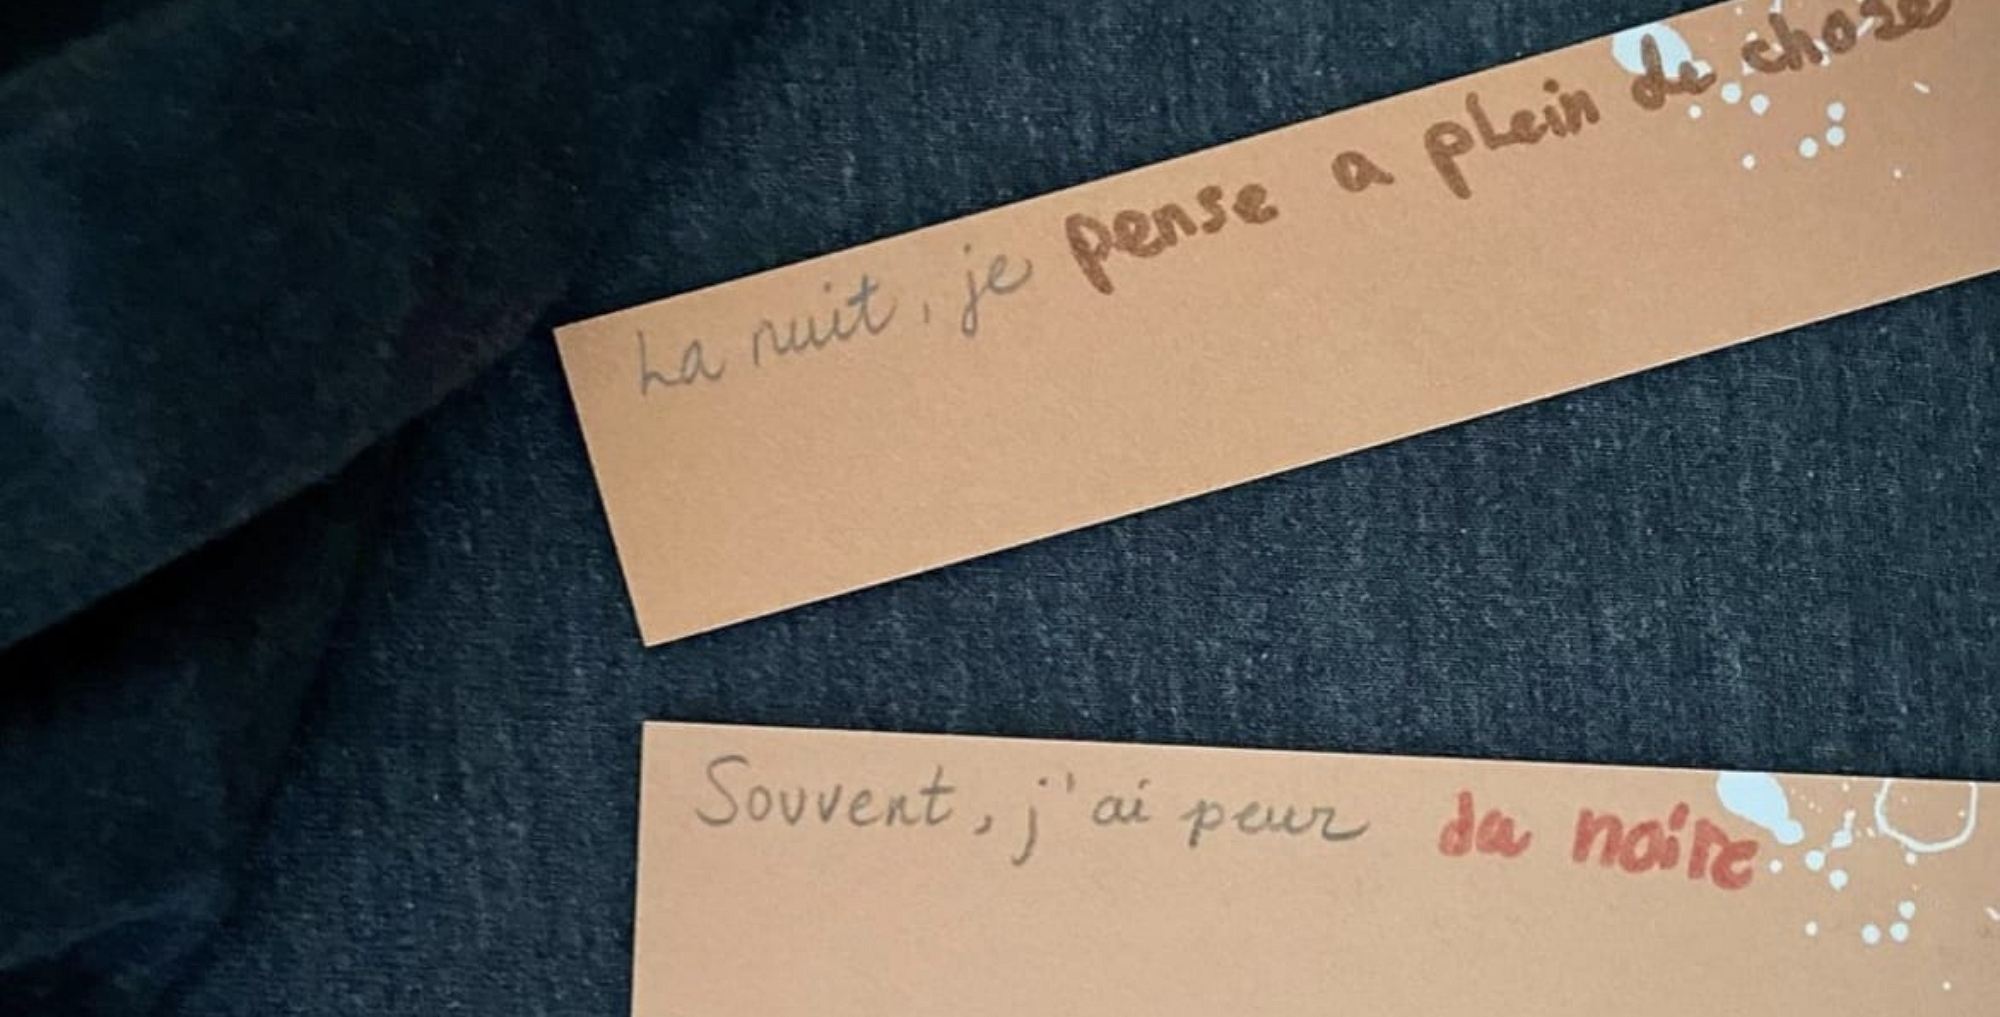 La nuit, je pense a plein de chose
Souvent, j'ai peur du noire